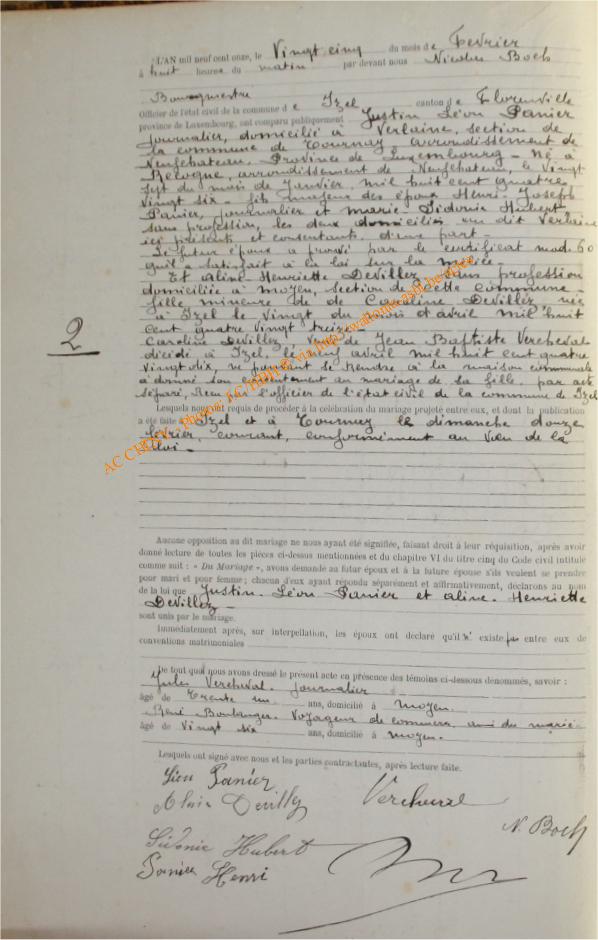 L'AN mil neuf cent onze, le Vingt cinq du mois de Fevrier
à huit heures du matin par devant nous Nicolas Boch
Bourgmestre
Officier de l'état civil de la commune de Izel canton de Florenville
province de Luxembourg, ont comparu publiquement Justin Léon Panier
journalier, domicilié à Verlaine, section de
la commune de Tournay arrondissement de
Neufchateau, Province de Luxembourg - né à
Recogne, arrondissement de Neufchateau, le Vingt
sept du mois de Janvier, mil huit cent quatre
vingt six - fils majeur des époux Henri-Joseph
Panier, journalier et marie Sidonie Hubert
sans profession, les deux domiciliés au dit Verlaine
ici présents et consentants d'une part -
Le futur époux a prouvé par le certificat mod. 60
qu'il a satisfait à la loi sur la milice -
Et aline-Henriette Devillez, sans profession
domiciliée à moyen, section de cette commune -
fille mineure de de Caroline Devillez, née
à Izel le vingt du mois d'avril mil huit
cent quatre vingt treize -
Caroline Devillez, Veuve de Jean Baptiste Vercheval
décidé à Izel, le neuf avril mil huit cent quatre
vingt dix, ne pouvant se rendre à la maison communale
a donné son consentement au mariage de sa fille par acte
séparé, reçu par l'officier de l'état civil de la commune de Izel
2
Lesquels nous ont requis de procéder à la célébration du mariage projeté entre eux, et dont la publication
a été faite à Izel et à Tournay le dimanche douze
février, courant, conformément au vœu de la
loi -
ACCHERV : photo
Aucune opposition au dit mariage ne nous ayant été signifiée, faisant droit à leur réquisition, après avoir
donné lecture de toutes les pièces ci-dessus mentionnées et du chapitre VI du titre cinq du Code civil intitulé
comme suit : « Du Mariage », avons demandé au futur époux et à la future épouse s'ils veulent se prendre
pour mari et pour femme ; chacun d'eux ayant répondu séparément et affirmativement, déclarons au nom
de la loi que Justin-Léon Panier et aline-Henriette
Devillez -
sont unis par le mariage.
Immédiatement après, sur interpellation, les époux ont déclaré qu'il n'existe pas entre eux de
conventions matrimoniales
De tout quoi nous avons dressé le présent acte en présence des témoins ci-dessous dénommés, savoir :
Jules Vercheval, journalier
âgé de Trente un ans, domicilié à moyen.
René Boulanger, Voyageur de commerce, ami du marié
âgé de Vingt six ans, domicilié à moyen.
Lesquels ont signé avec nous et les parties contractantes, après lecture faite.
Léon Panier
Devillez Vercheval
N. Boch
Sidonie Hubert
Panier Henri